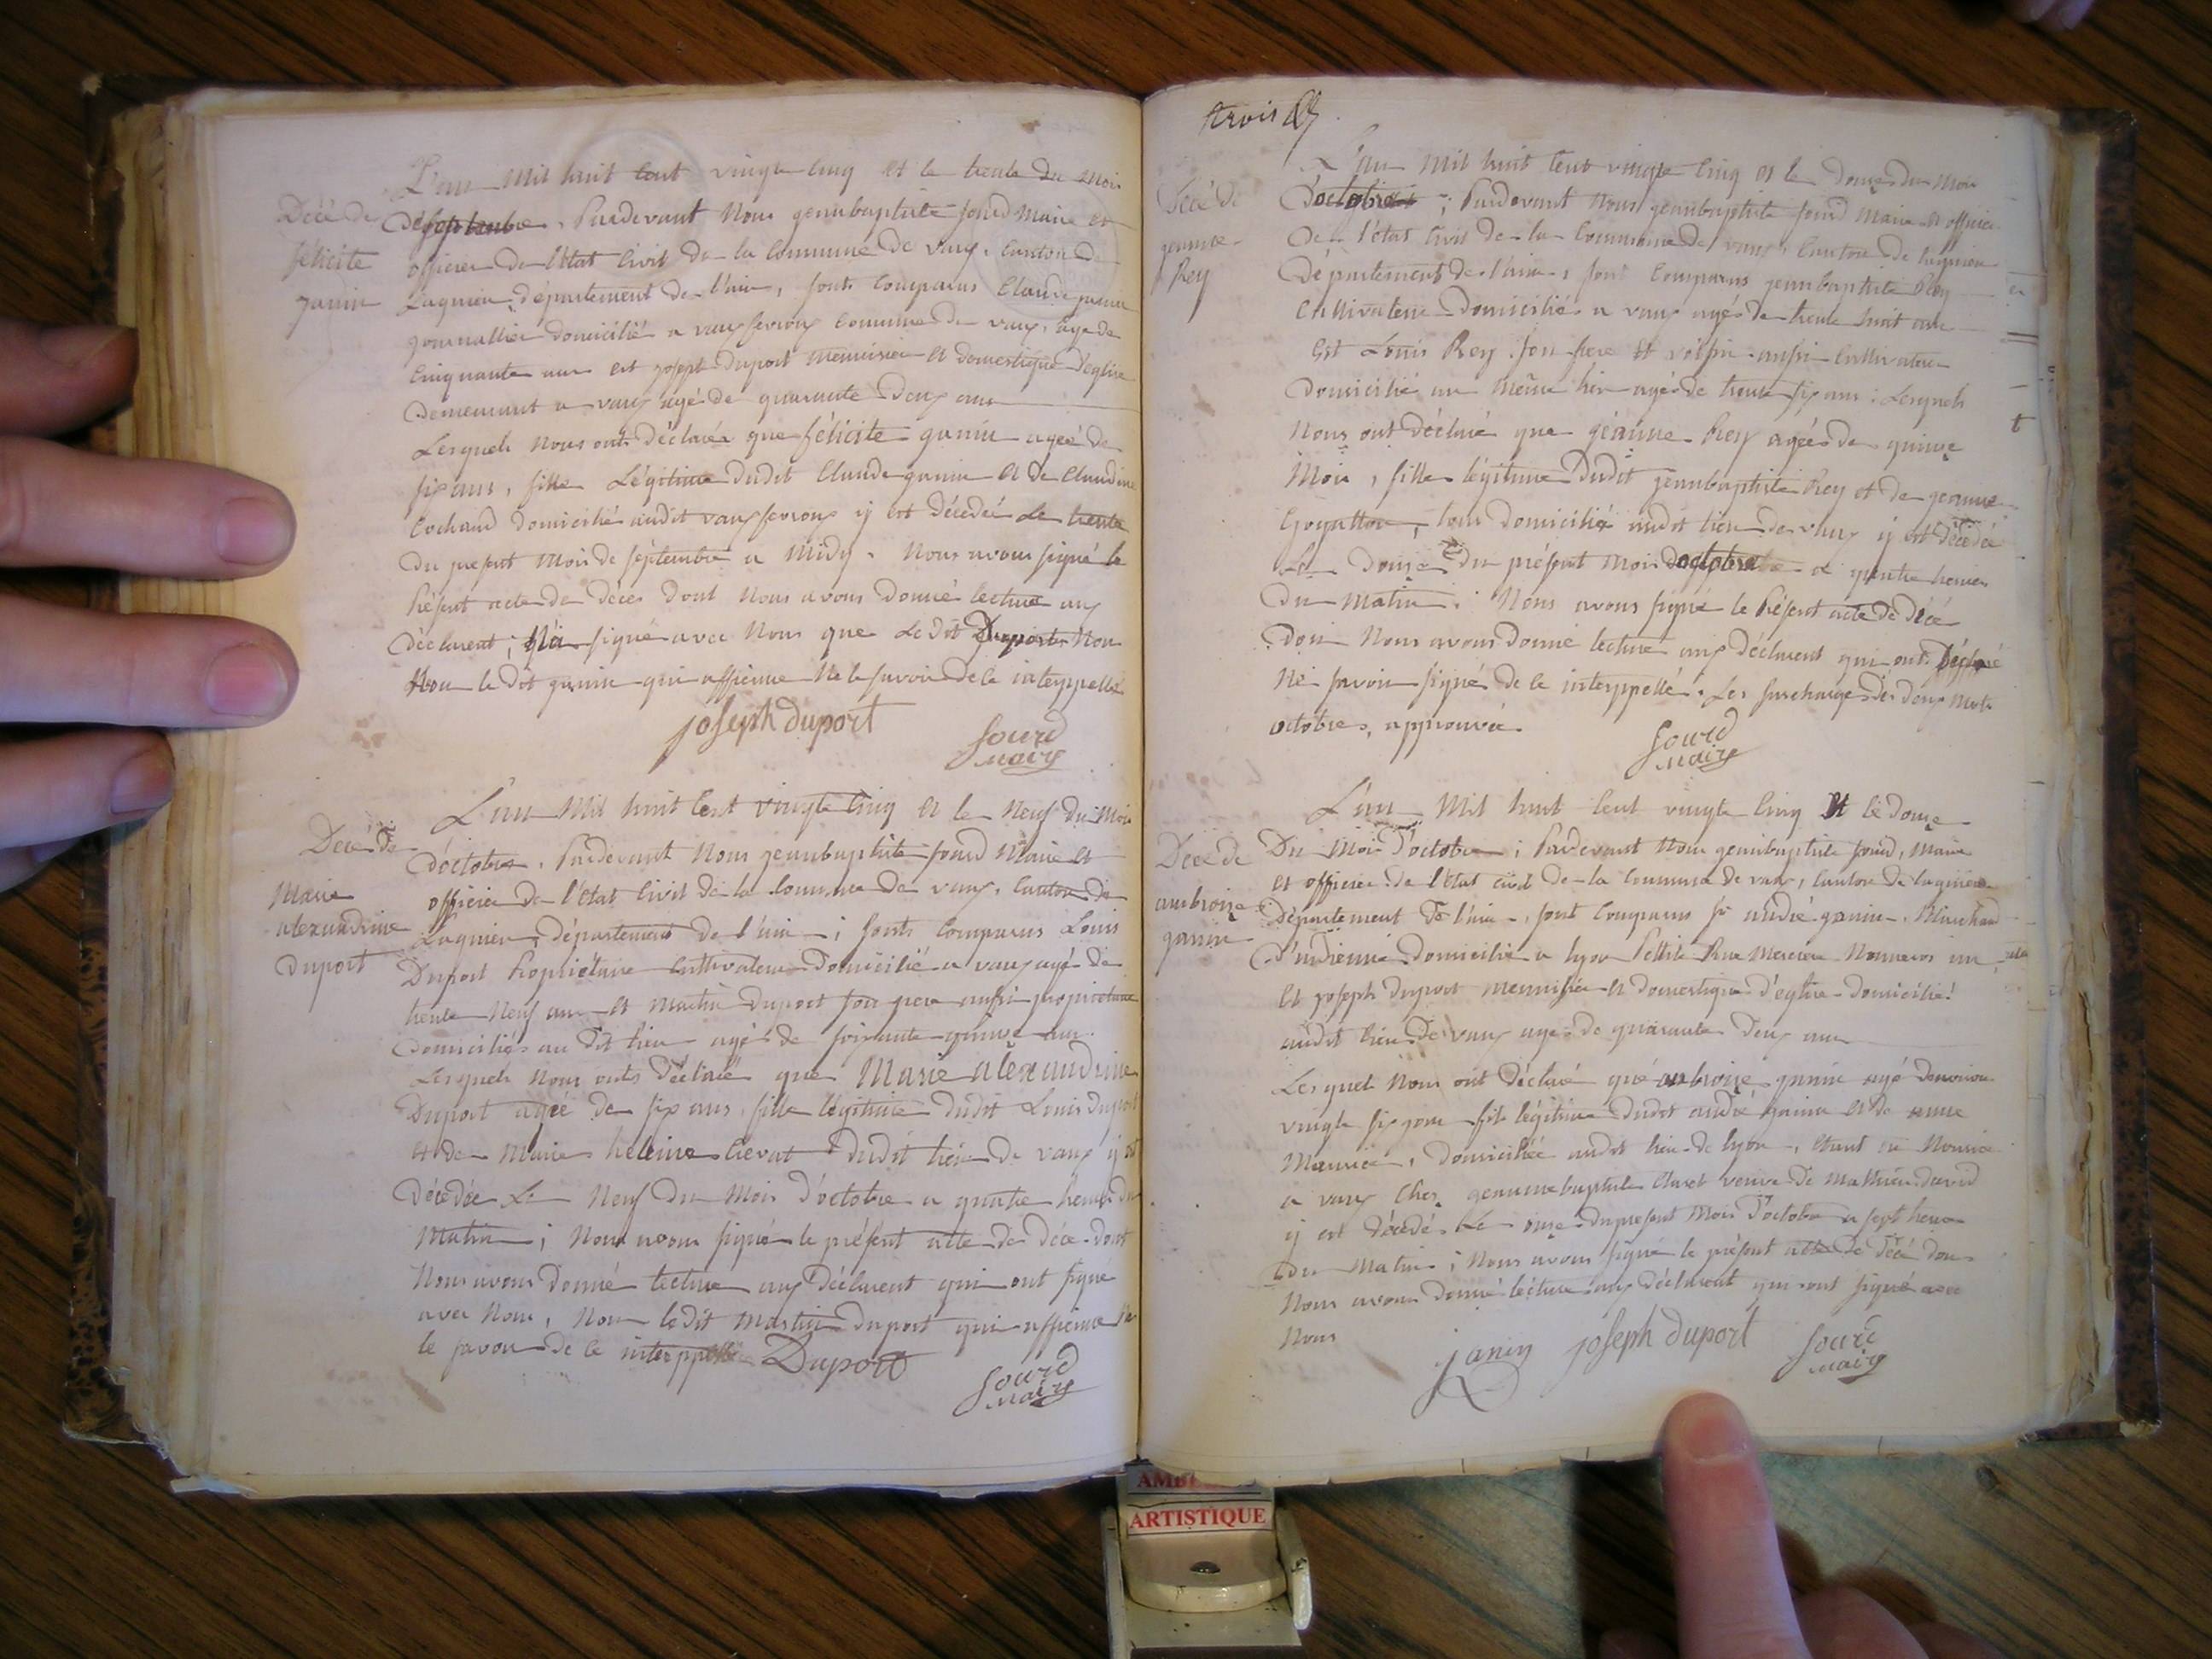 L'an mil huit cent vingte cinq et le trente du mois
Décé de
félicite
janin
déseptembre, Pardevant Nous jeanbaptiste sourd Maire et
officier de l'état Civil de la Commune de vaux, Canton de
Lagnieu département de l'ain, sonts Comparus Claude janin
journallier domicilié a vaux fevroux Commune de vaux, agé de
Cinquante ans est joseph duport menuisier et domestique d'eglise
demeurant a vaux agé de quarante deux ans
Lesquels nous onts déclarée que félicite ganin ageé de
six ans, fille Légitime dudit Claude ganin et de Claudine
Cochand domicilié audit vaux fevroux y est décedée le trente
du present mois de séptembre a midy. Nous avons signé le
Présent acte de décés dont nous avons donné lecture aux
déclarent; signé avec nous que le dit Duport Non
le dit ganin qui affirme ne le savoir de ce interppellé
joseph duport
sourd
maire
L'an mil huit cent vingte cinq et le neuf du mois
Décé de
Marie
alexandrine
duport
d'octobre, Pardevant Nous jeanbaptiste sourd Maire et
officier de l'état Civil de la Commune de vaux, Canton de
Lagnieu, département de l'ain; sonts Comparus Louis
Duport Propriétaire Cultivateur domicilié a vaux agé de
trente neuf ans et Martin duport son pere aussi propriétaire
domiciliés au dit lieu agé de soixante quinze ans.
Lesquels nous onts déclaré que Marie alexandrine
Duport ageé de six ans, fille légitime dudit Louis duport
et de Marie heleine lievat dudit lieu de vaux y est
décédée Le Neuf du mois d'octobre a quatre heures du
Matin; Nous avons signé le présent acte de décé dont
Nous avons donné lecture aux déclarent qui ont signé
avec nous, Non le dit Martin duport qui affirme ne
le savoir de ce interppellé Duport
sourd
maire
trois
L'an mil huit cent vingte cinq et le douze du mois
Décé de
jeanne
Rey
d'octobre; Pardevant nous jeanbaptiste sourd Maire et officier
de l'état Civil de la Commune de vaux, Canton de lagnieu
Département de l'ain, sont Comparus jeanbaptiste Rey
Cultivateur domiciliés a vaux agés de trente huit ans
est Louis Rey son frere et voisin aussi Cultivateur
domicilié au même lieu agés de trente six ans; Lesquels
nous ont déclaré que géanne Rey agéés de quinze
Mois, fille légitime dudit jeanbaptiste Rey et de jeanne
Goyatton, tous domicilié audit lieu de vaux y est décédée
Le douze du présent mois d'octobre a quatre heures
du matin. Nous avons signé le Présent acte de décé
dont Nous avons donné lecture aux déclarent qui ont déclaré
ne savoir signé de ce interppellé. Les surcharges des deux mots
octobres, approuvée
sourd
maire
L'an mil huit cent vingte cinq et le douze
Décé de
ambroize
janin
Du mois d'octobre; Pardevant Nous jeanbaptiste sourd, Maire
et officier de l'état civil de la Commune de vaux, Canton de lagnieu
département de l'ain, sont Comparus sr andré ganin, Marchand
d'indienne domicilié a lyon Pettite Rue Merciere Numeros un
et joseph duport menuisier et domestique d'eglise domicilié
audit lieu de vaux agé de quarante deux ans
Lesquel Nous ont déclaré qué ambroize ganin agé d'environ
vingte six jour fils légitime dudit andré ganin et de anne
Maurice, domiciliée audit lieu de lyon, étant en Nourice
a vaux Chez jeannebaptiste Claret veuve de Mathieu david
y est décédé Le onze du present mois d'octobre a sept heure
du Matin; Nous avons signé le présent acte de décé don
Nous avons donné lécture aux déclarent qui ont signé avec
Nous
janin joseph duport sourd
maire
ARTISTIQUE